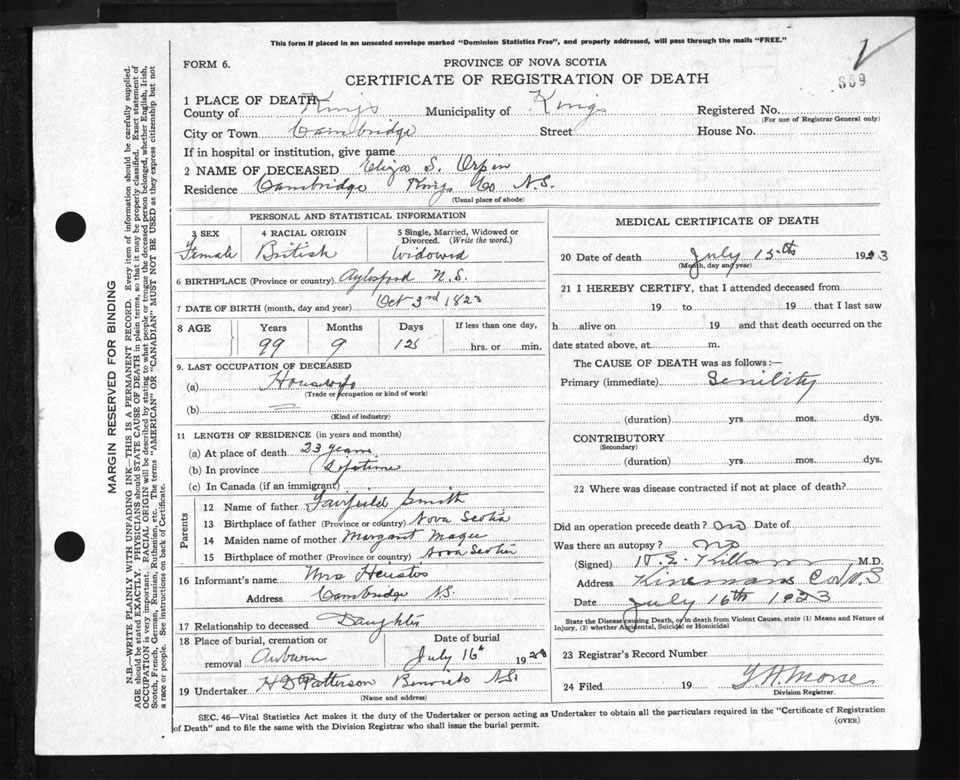 This form if placed in an unsealed envelope marked "Dominion Statistics Free", and properly addressed, will pass through the mails "FREE."
FORM 6.
PROVINCE OF NOVA SCOTIA
CERTIFICATE OF REGISTRATION OF DEATH
869
1 PLACE OF DEATH—
County of Kings Municipality of Kings Registered No.
(For use of Registrar General only)
City or Town Cambridge Street House No.
If in hospital or institution, give name
2 NAME OF DECEASED Eliza S. Orpin
Residence Cambridge Kings Co N.S.
(Usual place of abode)
PERSONAL AND STATISTICAL INFORMATION
3 SEX 4 RACIAL ORIGIN 5 Single, Married, Widowed or Divorced. (Write the word.)
Female British Widowed
6 BIRTHPLACE (Province or country) Aylesford N.S.
7 DATE OF BIRTH (month, day and year) Oct 3rd 1823
8 AGE Years Months Days If less than one day,
99 9 12 hrs. or min.
9. LAST OCCUPATION OF DECEASED
(a) Housewife
(Trade or occupation or kind of work)
(b)
(Kind of industry)
11 LENGTH OF RESIDENCE (in years and months)
(a) At place of death 23 years
(b) In province Lifetime
(c) In Canada (if an immigrant)
Parents
12 Name of father Fairfield Smith
13 Birthplace of father (Province or country) Nova Scotia
14 Maiden name of mother Margaret Magee
15 Birthplace of mother (Province or country) Nova Scotia
16 Informant's name Mrs
Address Cambridge N.S.
17 Relationship to deceased Daughter
18 Place of burial, cremation or removal Auburn
Date of burial July 16th 192
19 Undertaker H D Patterson N.S.
(Name and address)
MEDICAL CERTIFICATE OF DEATH
20 Date of death July 15th 1923
(Month, day and year)
21 I HEREBY CERTIFY, that I attended deceased from
19 to 19 that I last saw
h alive on 19 and that death occurred on the
date stated above, at m.
The CAUSE OF DEATH was as follows:—
Primary (immediate) Senility
(duration) yrs. mos. dys.
CONTRIBUTORY
(Secondary)
(duration) yrs. mos. dys.
22 Where was disease contracted if not at place of death?
Did an operation precede death? no Date of
Was there an autopsy? no
(Signed) Killam M.D.
Address Kinsmans Cor N.S
Date July 16th 1923
State the Disease causing Death, or in death from Violent Causes, state (1) Means and Nature of
Injury, (2) whether Accidental, Suicidal or Homicidal
23 Registrar's Record Number
24 Filed 19 Morse
Division Registrar.
SEC. 46—Vital Statistics Act makes it the duty of the Undertaker or person acting as Undertaker to obtain all the particulars required in the "Certificate of Registration
of Death" and to file the same with the Division Registrar who shall issue the burial permit.
(OVER)
MARGIN RESERVED FOR BINDING
N.B.—WRITE PLAINLY WITH UNFADING INK—THIS IS A PERMANENT RECORD. Every item of information should be carefully supplied.
AGE should be stated EXACTLY. PHYSICIANS should STATE CAUSE OF DEATH in plain terms, so that it may be properly classified. Exact statement of
OCCUPATION is very important. RACIAL ORIGIN will be described by stating to what people or tongue the deceased person belonged, whether English, Irish,
Scotch, French, German, Russian, Ruthenian, etc. The terms "AMERICAN" or "CANADIAN" MUST NOT BE USED as they express citizenship but not
a race or people. See instructions on back of Certificate.